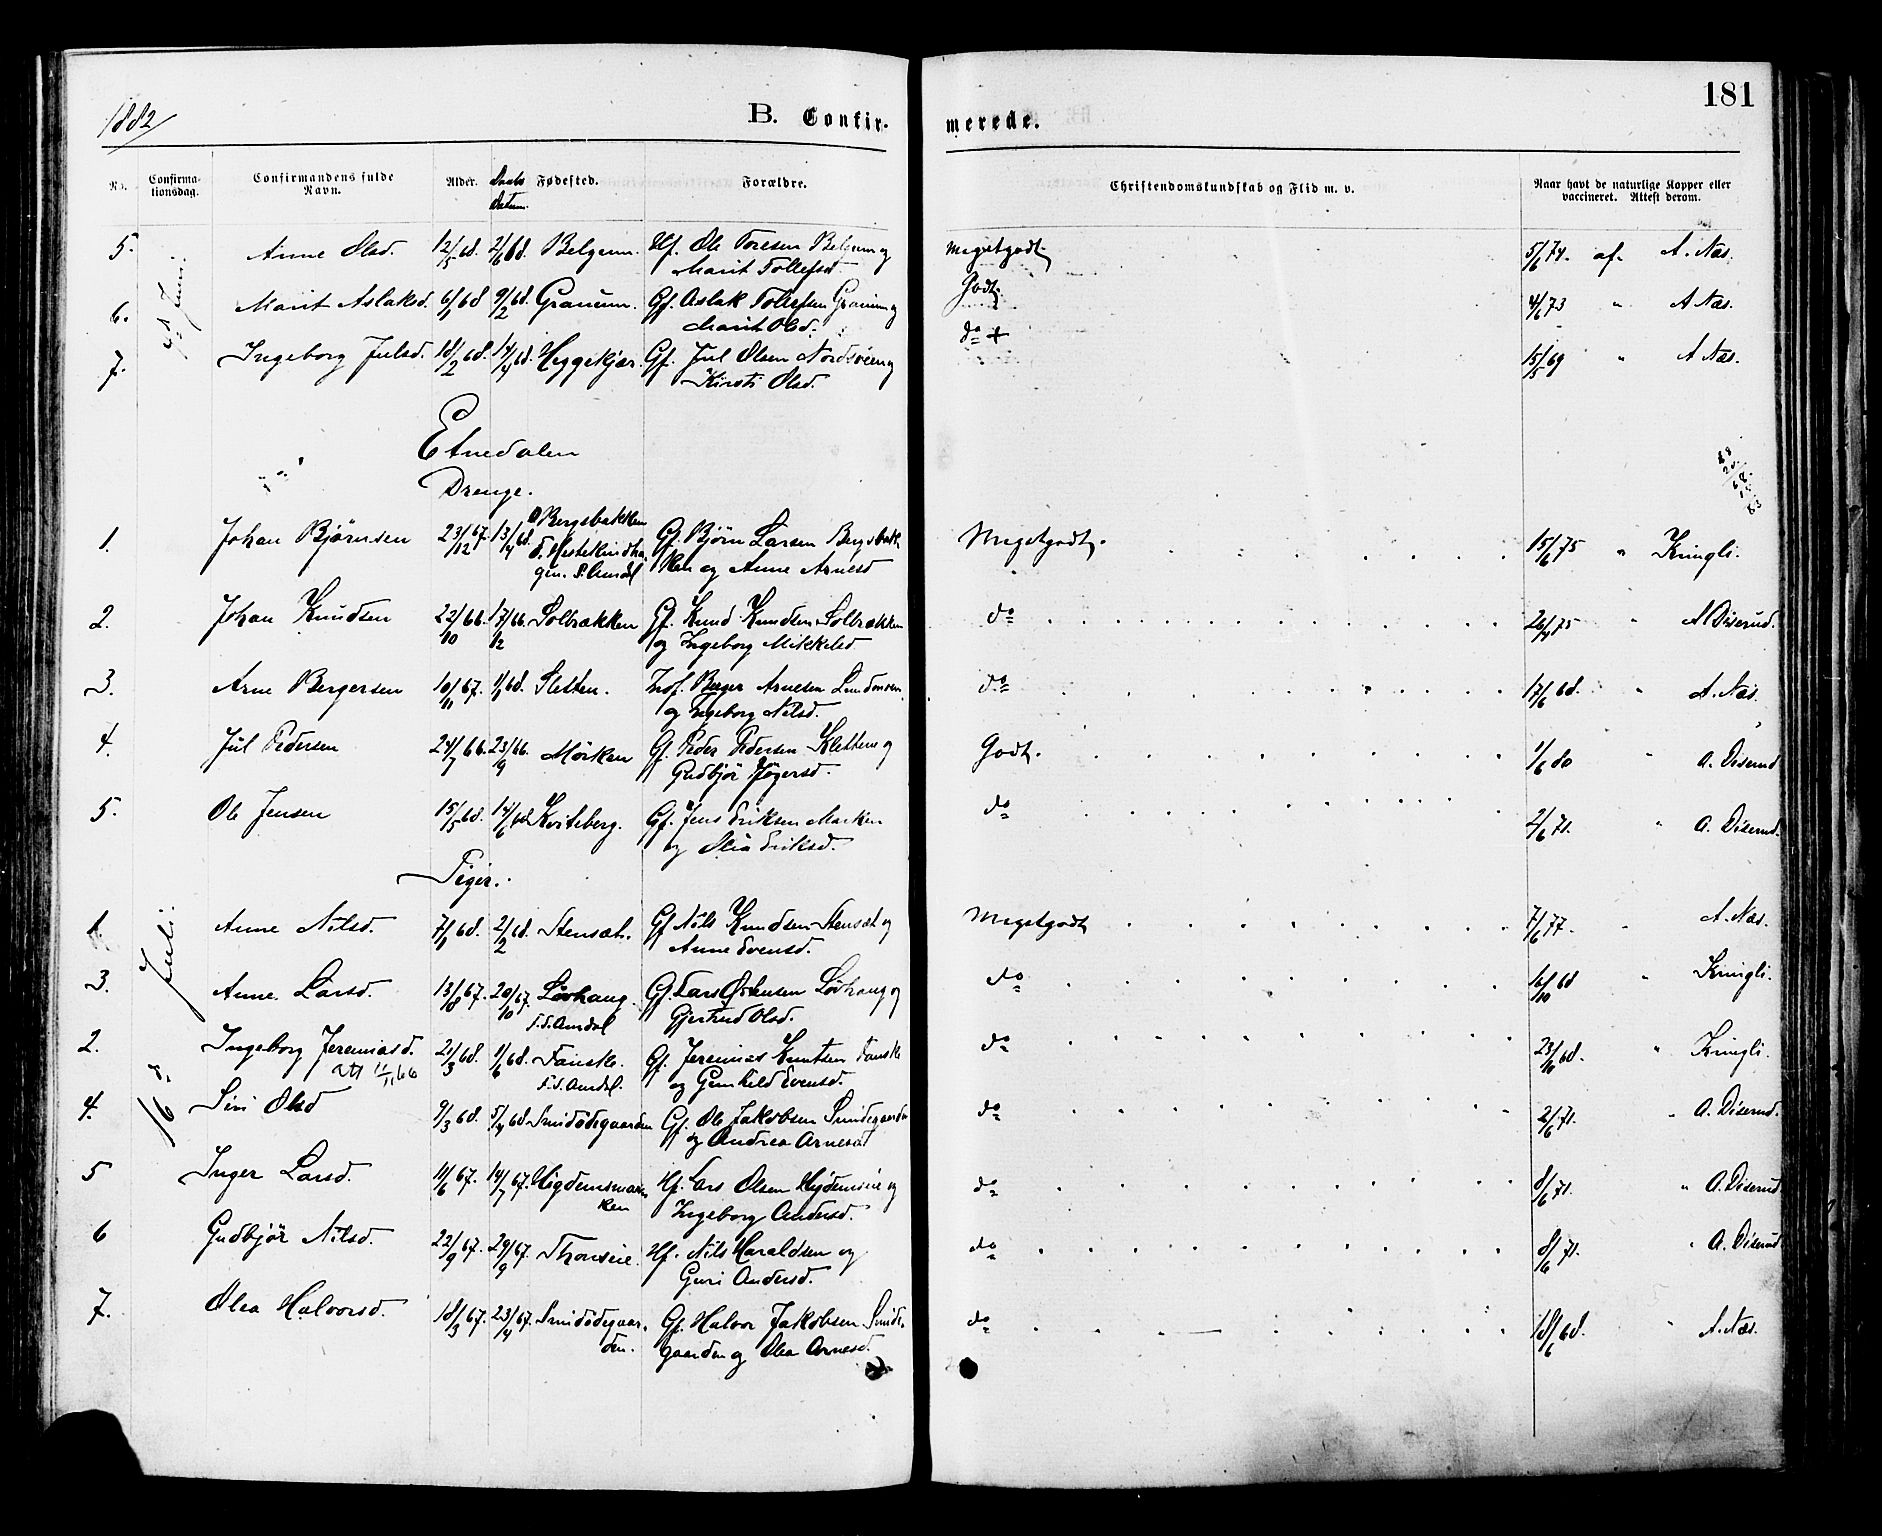 1882
B. Confir-
merede.
181
No.
Confirma-
tionsdag.
Confirmandens fulde
Navn.
Alder.
Daabs
datum.
Fødested.
Forældre.
Christendomskundskab og Flid m. v.
Naar havt de naturlige Kopper eller
vaccineret. Attest derom.
5. Anne Olsd. 12/5 68. 2/6 68. Belgum. Hf. Ole Toresen Belgum og Megetgodt 5/6 74. af A. Næs.
Marit Tollefsd.
6. Marit Aslaksd. 6/1 68 9/2 68. Granum. Gf. Aslak Tollefsen Granum og Godt. 4/6 73 " A Næs.
Marit Olsd.
7. Ingeborg Julsd. 18/2 68. 14/4 68. Heggekjær. Gf. Jul Olsen Nordsveen og do + 15/5 69 " A Næs.
Kirsti Olsd.
Juni
Etnedalen
Drenge.
1. Johan Bjørnsen 23/12 67. 13/4 68. Bergsbakken Gf. Bjørn Larsen Bergsbak- Megetgodt. 15/6 75 " Kringli.
ken og Anne Arnesd
gen. S. Aurdal
2. Johan Knudsen 22/10 66. 17/12 66. Solbrækken Gf. Knud Knudsen Solbrækken do 26/4 75 " A Diserud.
og Ingeborg Mikkelsd
3. Arne Bergersen 10/11 67. 1/1 68. Sletten. Berger Arnesen do 17/6 68. " A. Næs.
og Ingeborg Nilsd.
4. Jul Pedersen 24/7 66. 23/9 66. Mørken Gf. Peder Pedersen Klettene og Godt. 1/6 80 " A. Diserud
Gudbjør
5. Ole Jensen 15/5 68. 14/6 68 Kviteberg. Gf. Jens Eriksen Marken do 2/6 71. " A. Diserud.
og Olia Eriksd.
Piger.
16d Juli.
1. Anne Nilsd. 7/1 68. 2/2 68. Stensæt. Gf Nils Knudsen Stensæt og Megetgodt 7/6 77. " A. Næs.
Anne Evensd.
3. Anne Larsd. 13/8 67. 20/10 67. Løvhaug. Gf. Lars Østensen Løvhaug og do 16/10 68 " Kringli.
S. Aurdal Gjertrud Olsd.
2. Ingeborg Jeremiasd. 21/3 68. 1/6 68. Fauske. Gf. Jeremias Knutsen Fauske do 23/10 68. " Kringli.
11/11 66 S. Aurdal. og Gunhild Evensd.
4. Siri Olsd 9/3 68. 5/4 68 Smidødegaarden Gf. Ole Jakobsen Smidegaarden do 2/6 71. " A. Diserud.
og Andrea Arnesd
5 Inger Larsd. 11/6 67. 14/7 67. Høgdemsmarken Hf. Lars Olsen og do 8/6 71. " A. Diserud
Ingeborg Andersd.
6 Gudbjør Nilsd. 22/9 67. 29/9 67. Thonseie. Hf. Nils Haraldsen og do 8/6 71. " A. Diserud
Guri Andersd.
7. Olea Halvorsd. 18/3 67. 23/4 67. Smidødegaar- Gf. Halvor Jakobsen Smide- do 18/6 68. " A. Næs.
den. gaarden og Olea Arnesd.